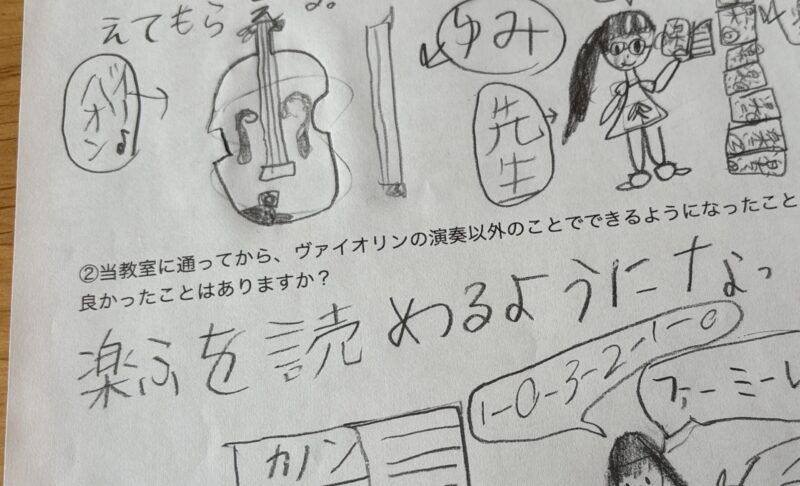 えてもらう。
ゆみ
バイオリン
先生
楽
②当教室に通ってから、ヴァイオリンの演奏以外のことでできるようになったこと
良かったことはありますか？
楽ふを読めるようになっ
1-0-3-2-1-0
ファーミーレ
カノン